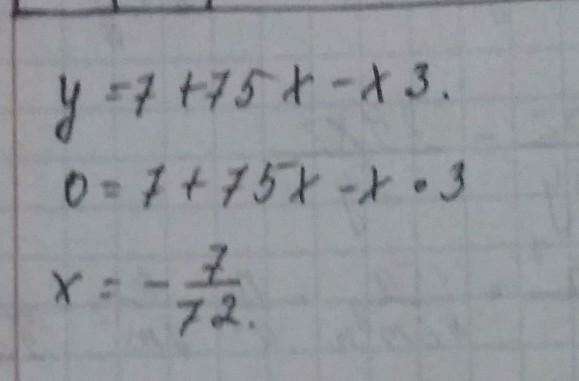 y = 7 + 75x - x3.
0 = 7 + 75x - x · 3
x = - 7/72.